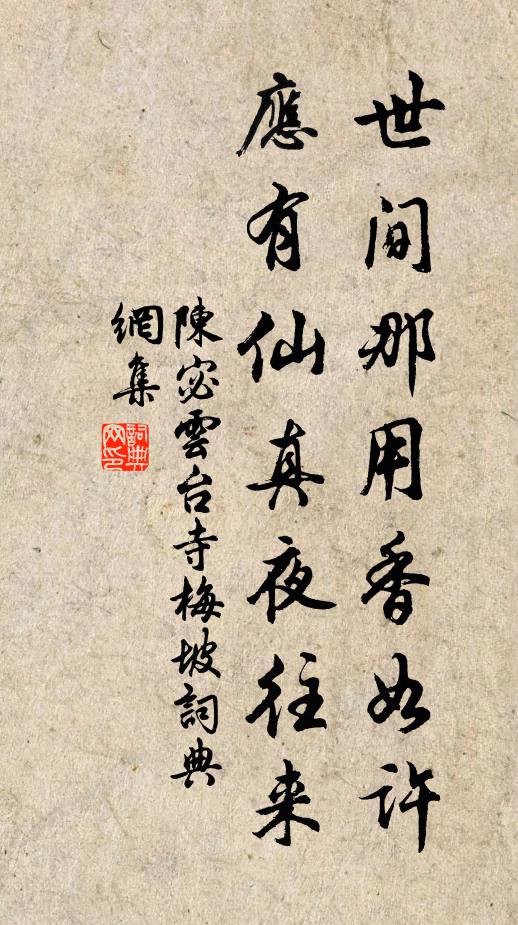 世間那用香如許
應有仙真夜往来
陳宓雲台寺梅坡詞典
網集
詞典
网印